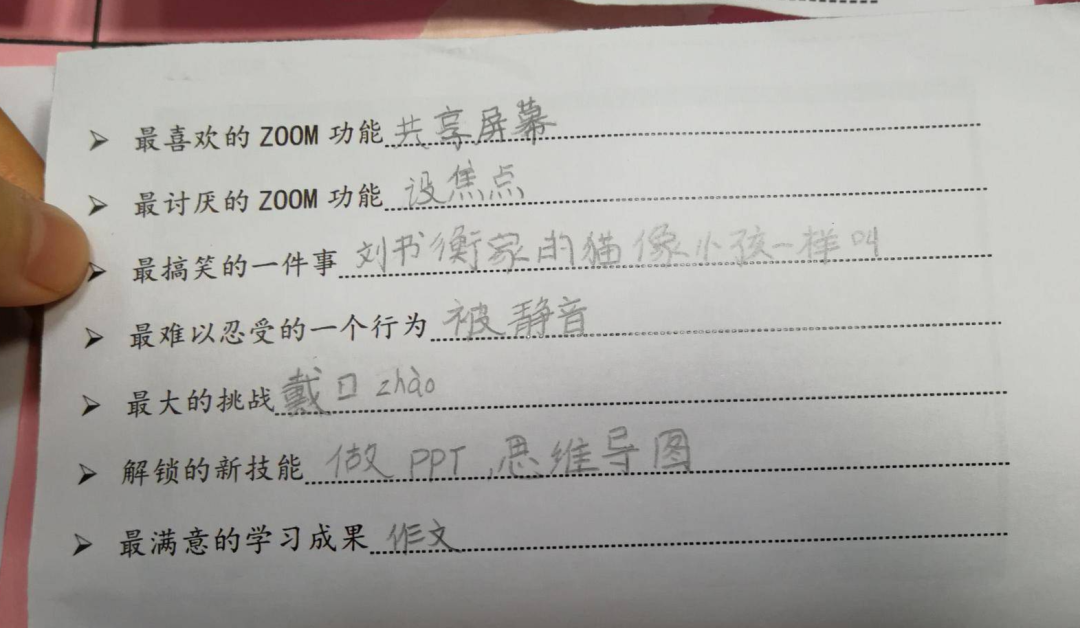 ➢ 最喜欢的 ZOOM 功能 共享屏幕
➢ 最讨厌的 ZOOM 功能 设焦点
➢ 最搞笑的一件事 刘书衡家的猫像小孩一样叫
➢ 最难以忍受的一个行为 被静音
➢ 最大的挑战 戴口 zhào
➢ 解锁的新技能 做 PPT、思维导图
➢ 最满意的学习成果 作文